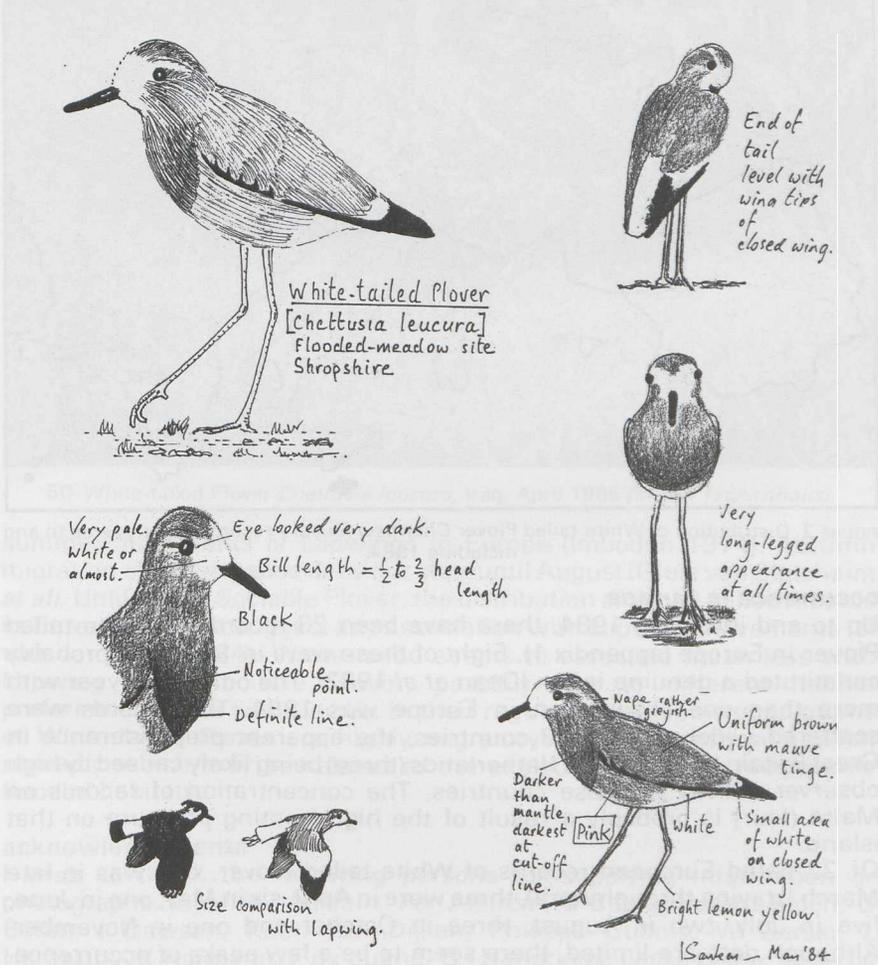 White-tailed Plover
[Chettusia leucura]
Flooded-meadow site
Shropshire
End of
tail
level with
wing tips
of
closed wing.
Very
long-legged
appearance
at all times.
Very pale.
White or
almost.
Eye looked very dark.
Bill length = 1/2 to 2/3 head
length
Black
Noticeable
point.
Definite line.
Nape rather
greyish.
Uniform brown
with mauve
tinge.
Darker
than
mantle,
darkest
at
cut-off
line.
Pink
White
Small area
of white
on closed
wing
Bright lemon yellow
Size comparison
with Lapwing.
'84